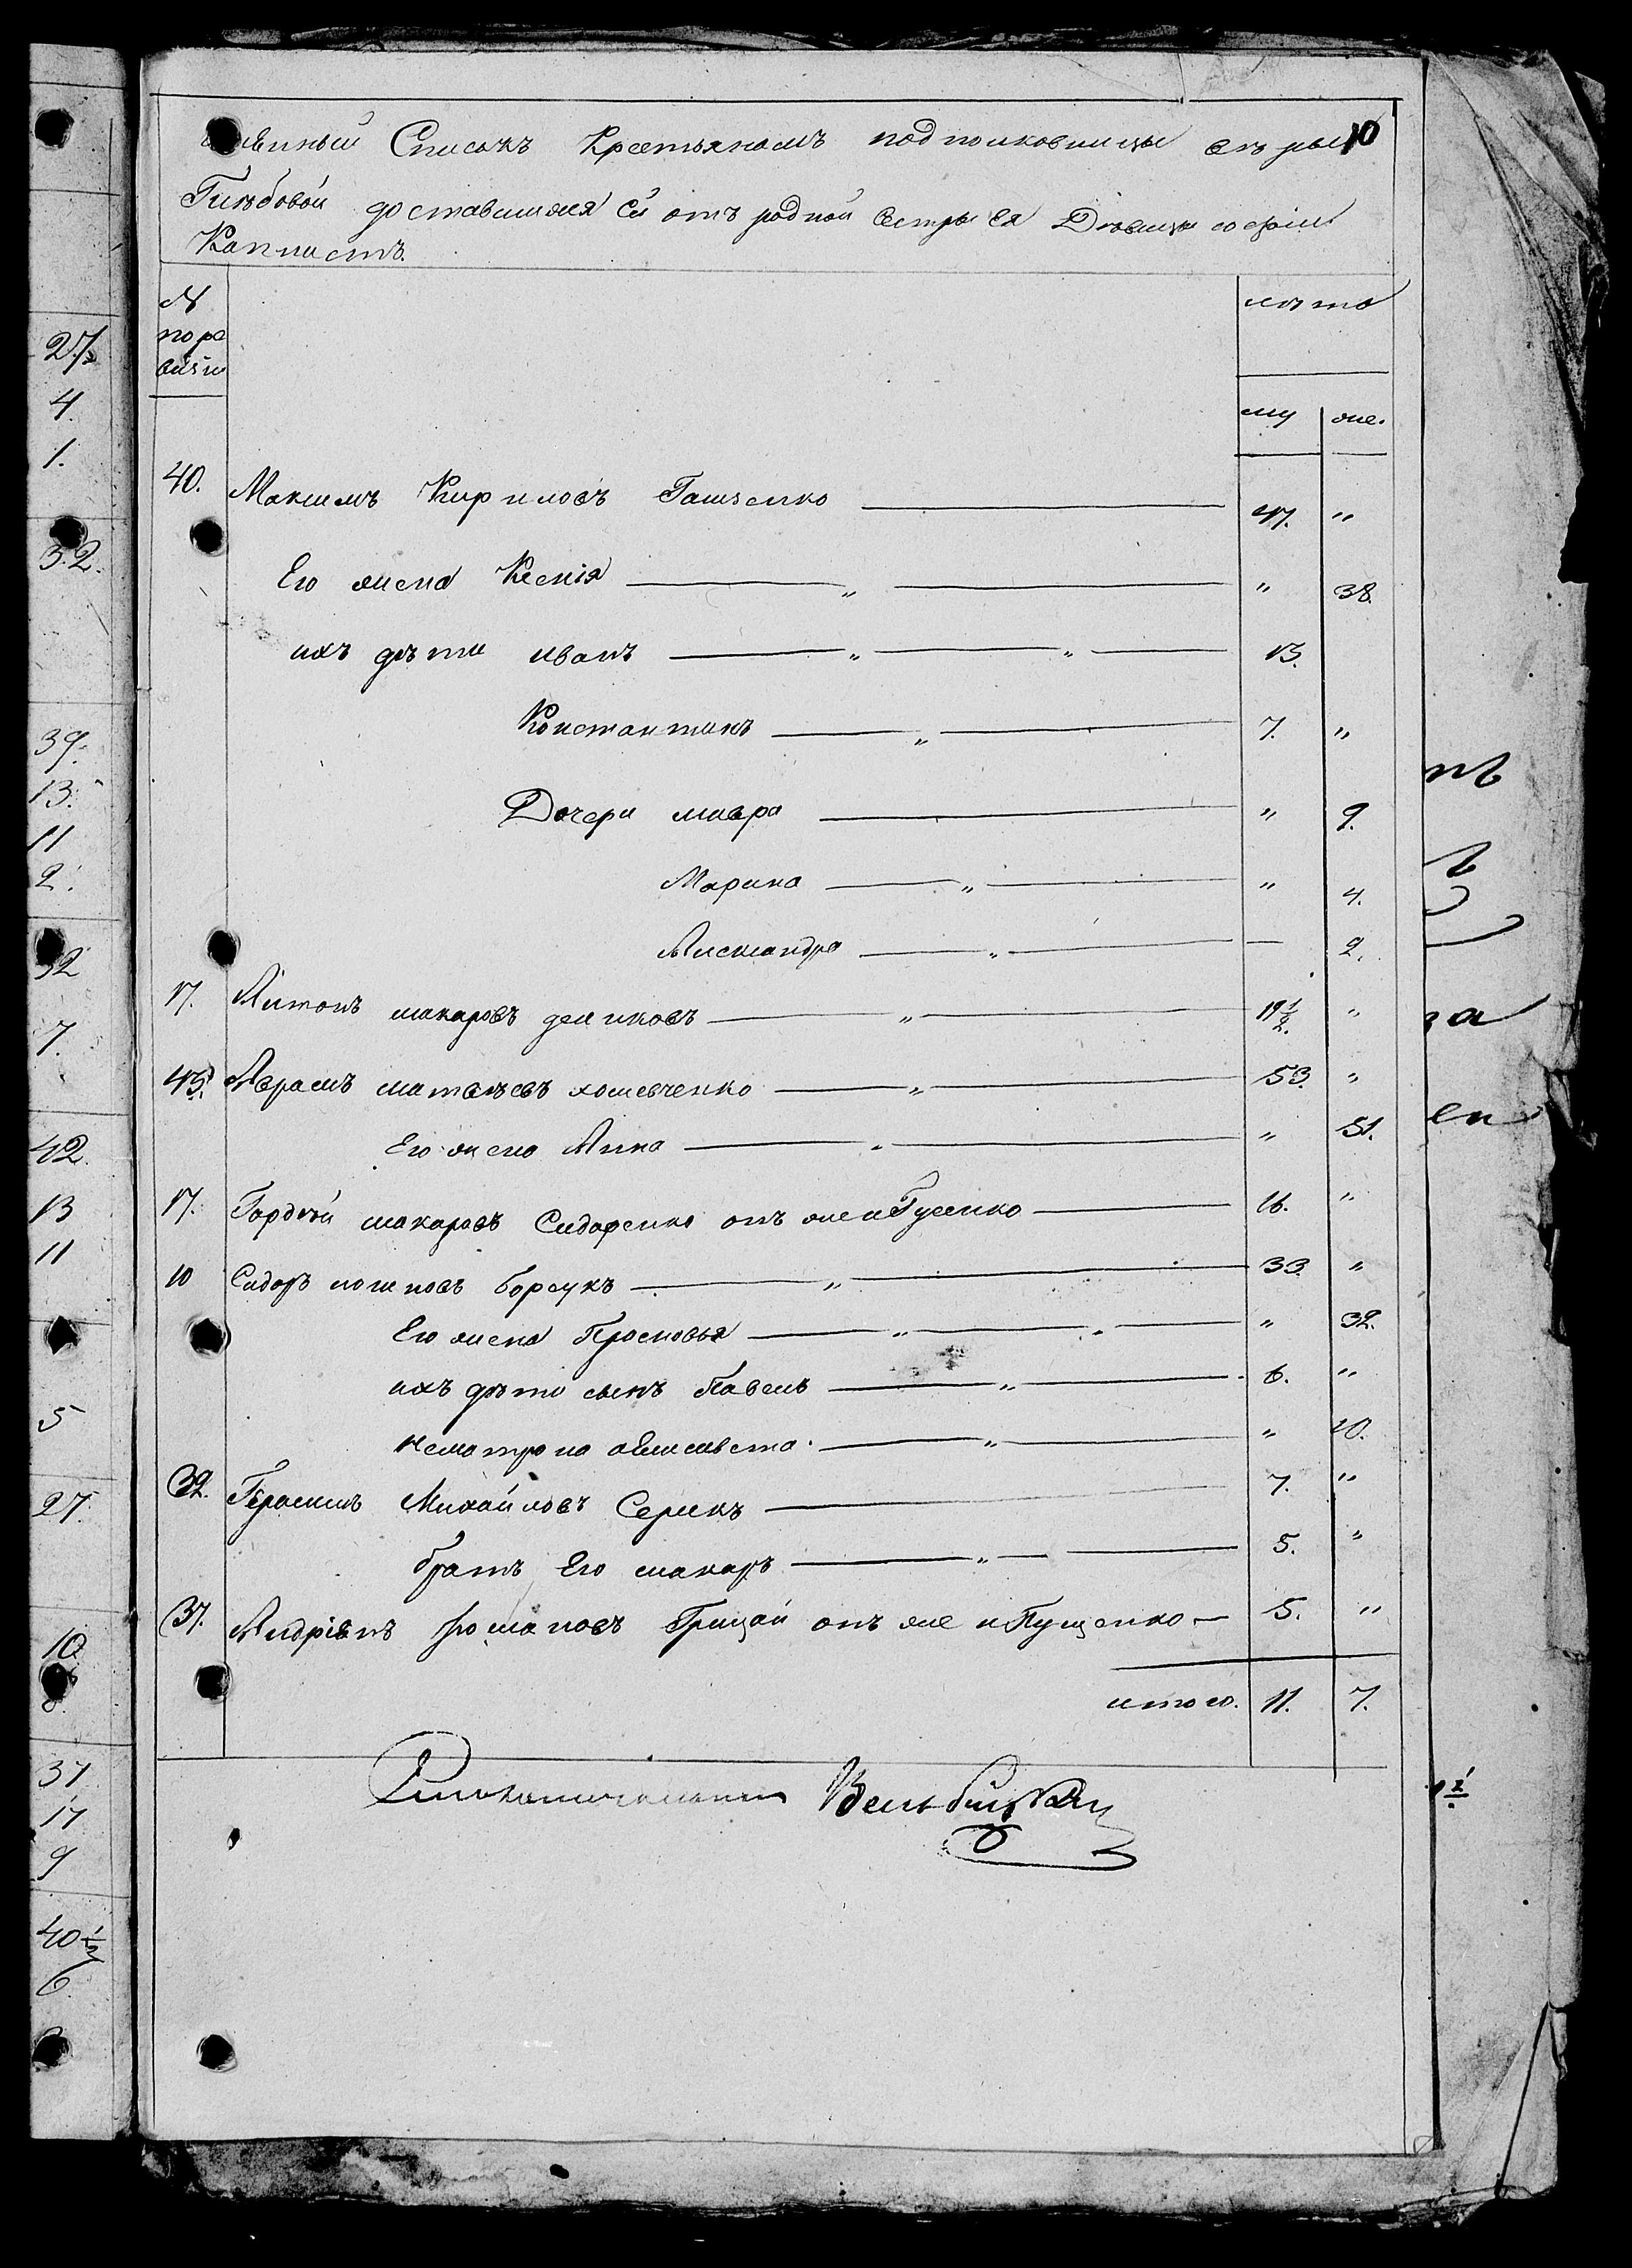 Списокъ Крестьянамъ подполковницы 10
Глѣбовой доставшимся Ей отъ родной сестры Ея Дѣвицы софіи
Капнистъ.
№ по ре визіи
лѣта
му же.
40. Максимъ Кириловъ Гашченко 47. "
Его жена Ксенія " " 38.
ихъ дѣти иванъ " " 13.
Константинъ " 7. "
Дочери мавра " 9.
Марина " " 4.
Александра " — 2.
17. Антонъ макаровъ " 19 1/2. "
45. Аврамъ матвѣевъ хомевченко " 53. "
Его жена Анна " " 51.
17. Гордѣй макаровъ Сидоренко онъ же и Гусенко 16. "
10 Сидоръ логиновъ борсукъ " 33. "
Его жена Просковья " " " 32.
ихъ дѣти сынъ Павелъ " 6. "
" " 10.
32. Герасимъ Михайловъ Серикъ 7. "
братъ Его макаръ " 5. "
37. Андріянъ романовъ Грицай онъ же и Пущенко 5. "
итого. 11. 7.
27.
4.
1.
32.
39.
13.
11
2.
32
7.
42.
13
11
5
27.
10
37
17
9
40 1/2
6